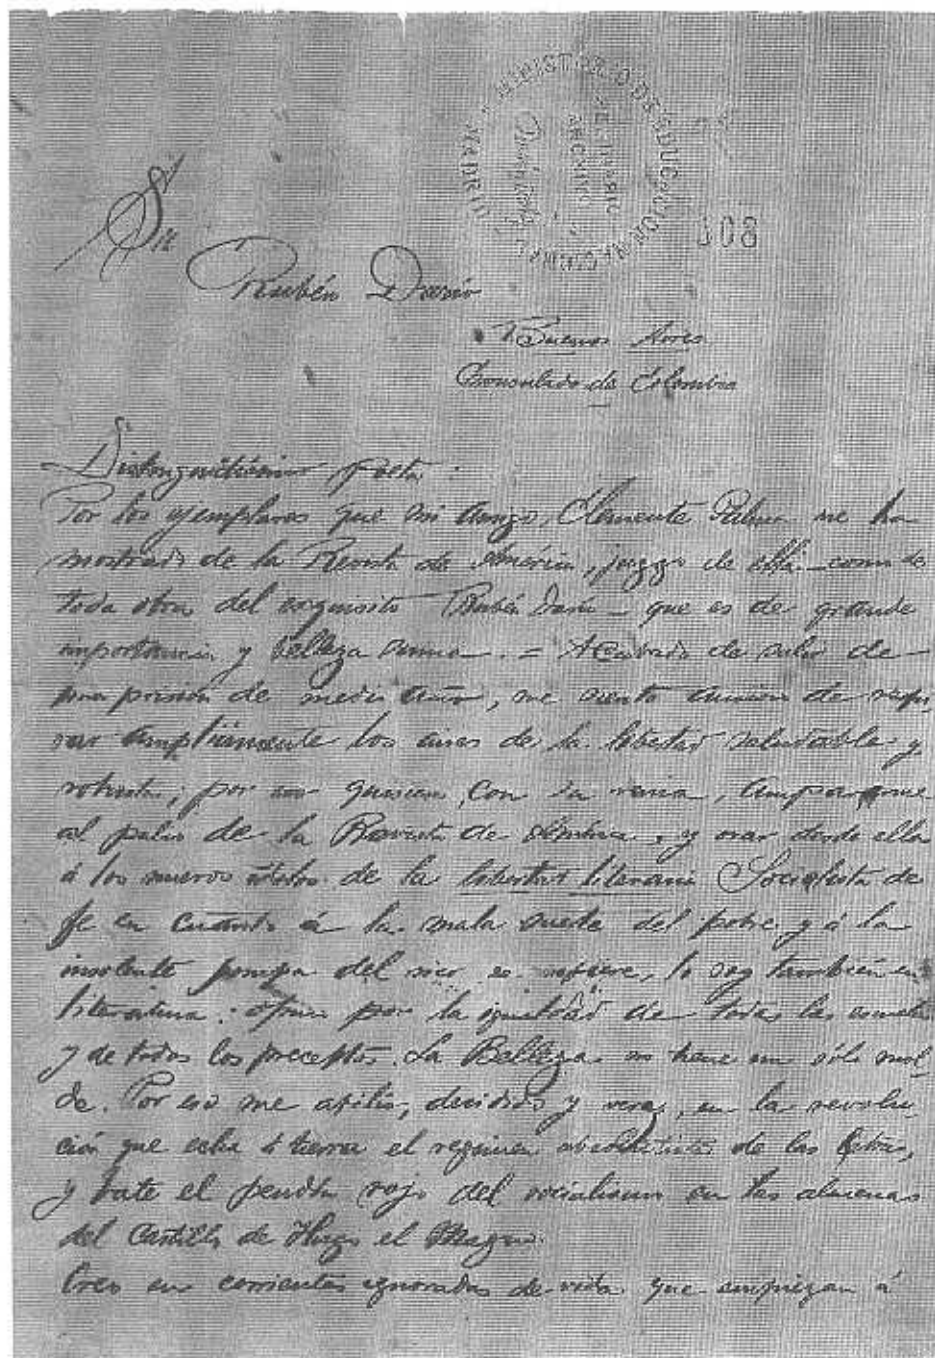 MINISTERIO DE EDUCACION NACIONAL
MADRID
ARCHIVO
308
Sr
Rubén Darío
Buenos Aires
Consulado de Colombia
Distinguidísimo poeta:
Por los ejemplares que mi amigo, Clemente Palma me ha
mostrado de la Revista de América, juzgo de ella – como de
toda obra del exquisito Rubén Darío – que es de grande
importancia y belleza suma. = Acabado de salir de
una prisión de medio año, me siento ansioso de respi
rar ampliamente los aires de la libertad saludable y
robusta; por eso quisiera, con su venia, ampararme
al palio de la Revista de América, y orar desde ella
á los nuevos ídolos de la libertad literaria Socialista de
fe en cuanto á la mala suerte del pobre y á la
insolente pompa del rico se refiere, lo soy también en
literatura: opino por la igualdad de todas las escuelas
y de todos los preceptos. La Belleza no tiene un sólo mol
de. Por eso me afilio, decidido y veraz, en la revolu
ción que echa á tierra el regimen absolutista de las letras,
y bate el pendón rojo del socialismo en las almenas
del Castillo de Hugo el Magno.
Creo en corrientes ignoradas de vida que empiezan á